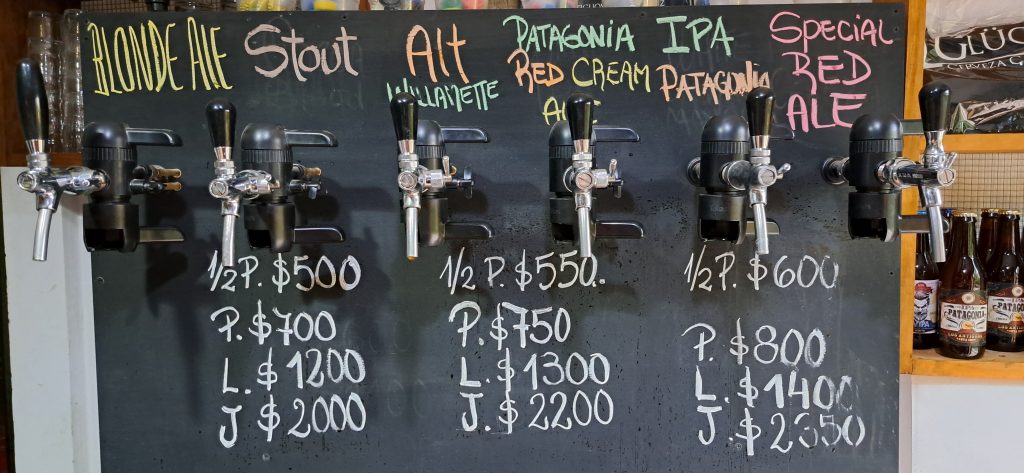 BLONDE ALE
Stout
Alt
WILLAMETTE
PATAGONIA
RED CREAM
ALE
IPA
PATAGONIA
SPECIAL
RED
ALE
1/2 P. $500
P. $700
L. $1200
J. $2000
1/2 P. $550.
P. $750
L. $1300
J. $2200
1/2 P. $600
P. $800
L. $1400
J. $2350
GLÜC
CERVEZA
PATAGONIA
PATAGONIA